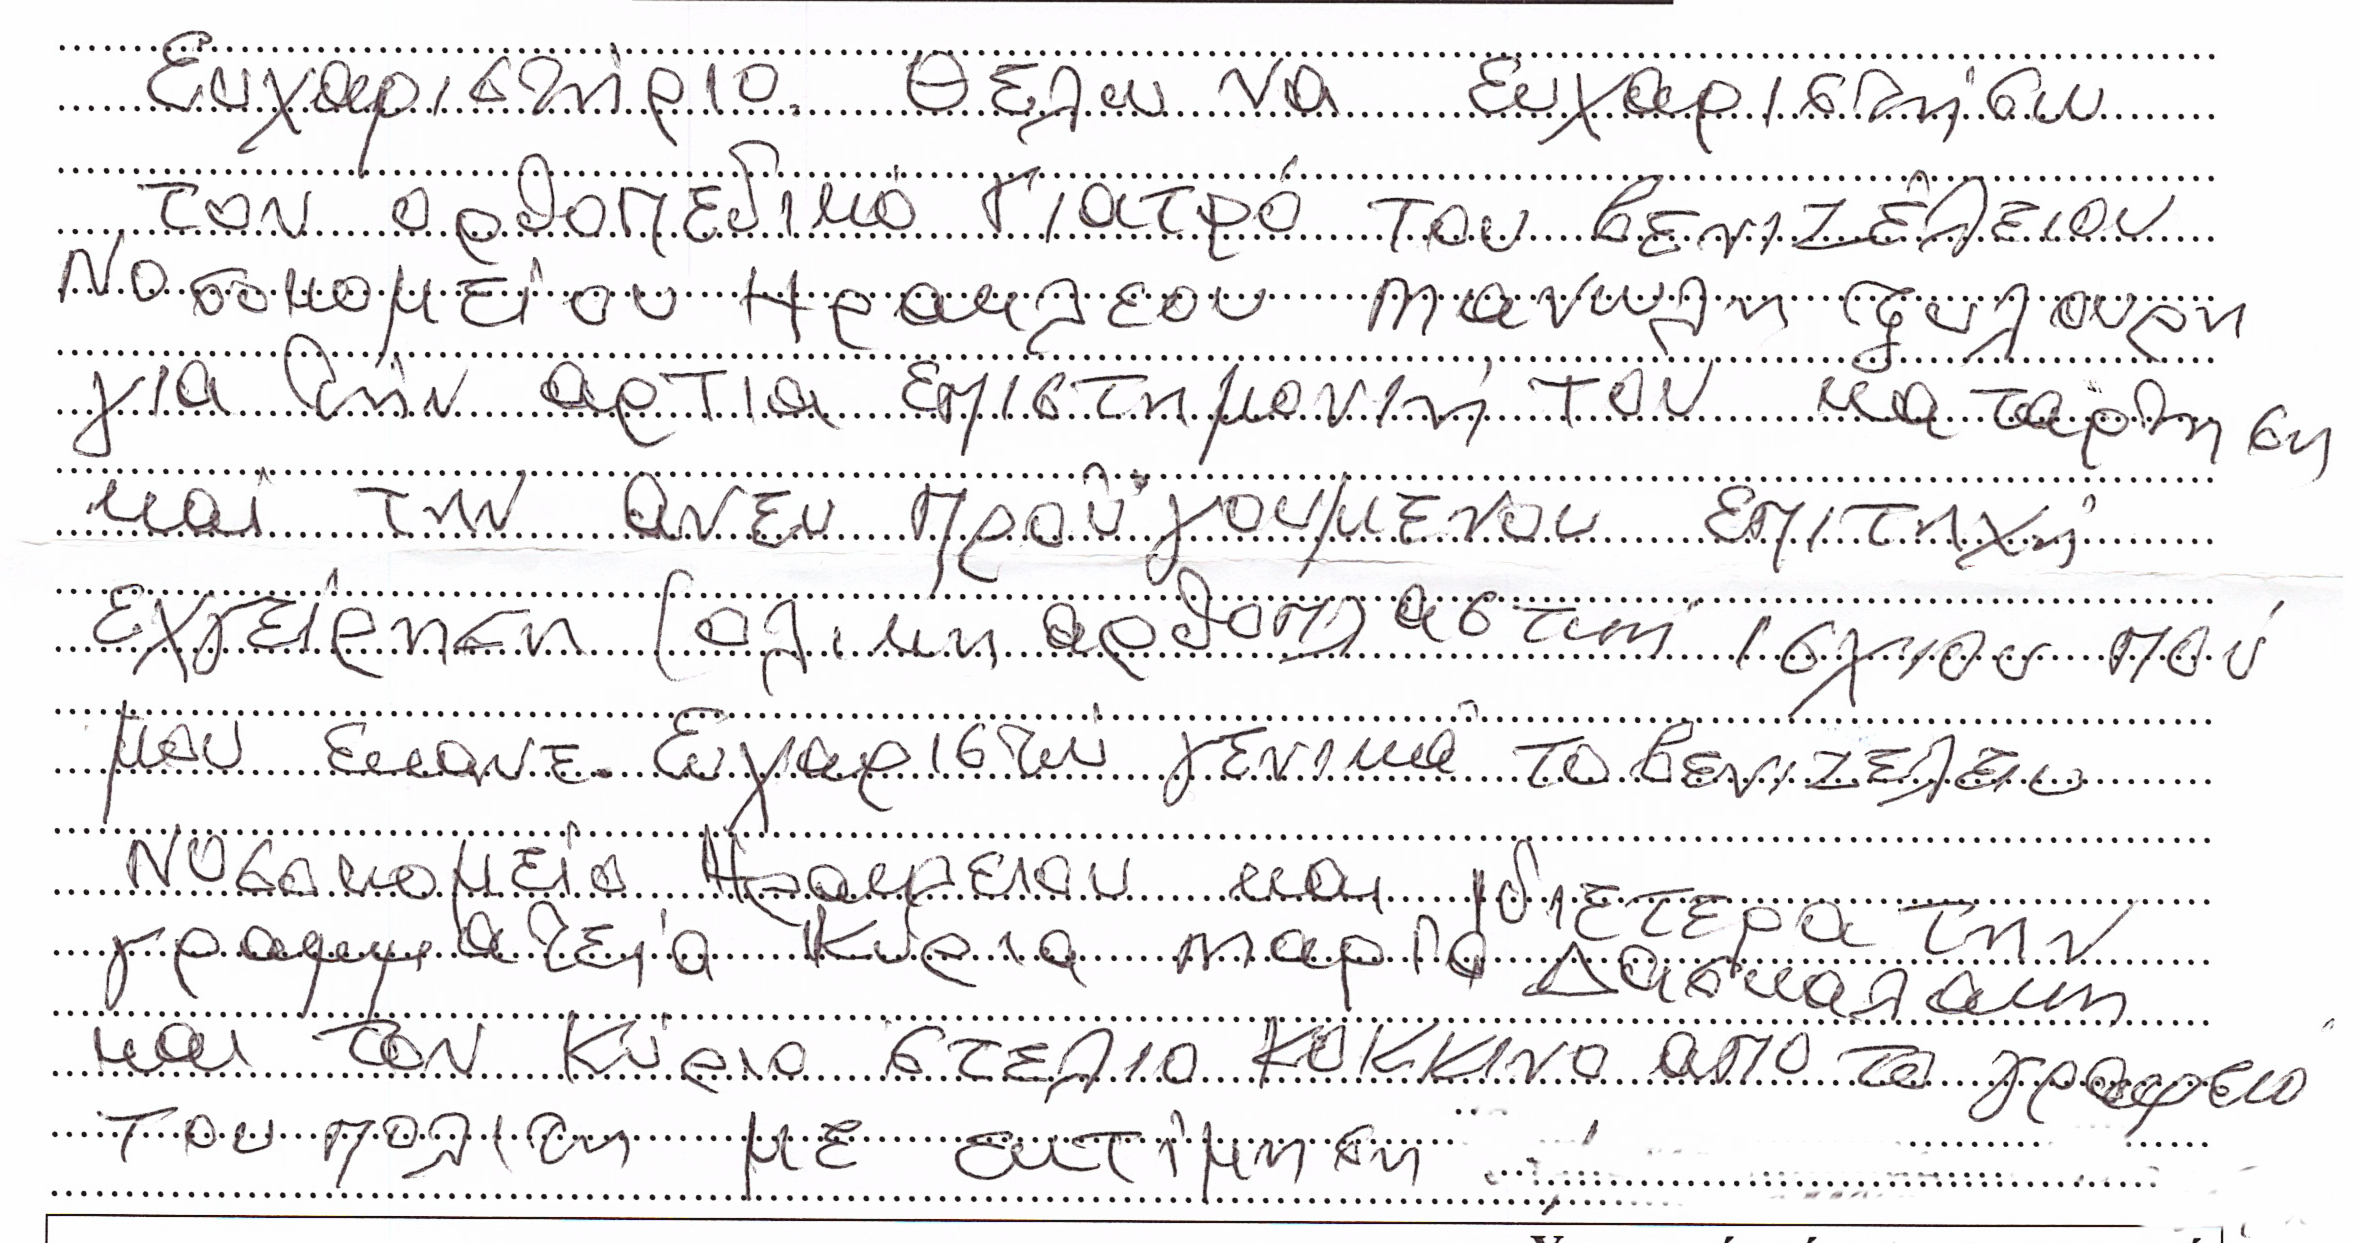 Ευχαριστήριο. Θελω να ευχαριστήσω
τον ορθοπεδικό γιατρό του βενιζέλειου
Νοσοκομείου Ηρακλεου Μανωλη Τζυλουρη
για την αρτια επιστημονική του καταρθηση
και την ανευ προϋγουμενου επιτηχή
εχγείρηση (ολικη αρθοπλαστική ισχιου πού
μου εκανε. Ευχαριστώ γενικά το βενιζελειο
Νοσοκομείο Ηρακλειου και ιδιετερα την
γραμματεία Κύρια Μαρία Δασκαλακη
και τον Κύριο στελιο κοκκινο απο το γραφειο
του πολιτη με εκτίμηση